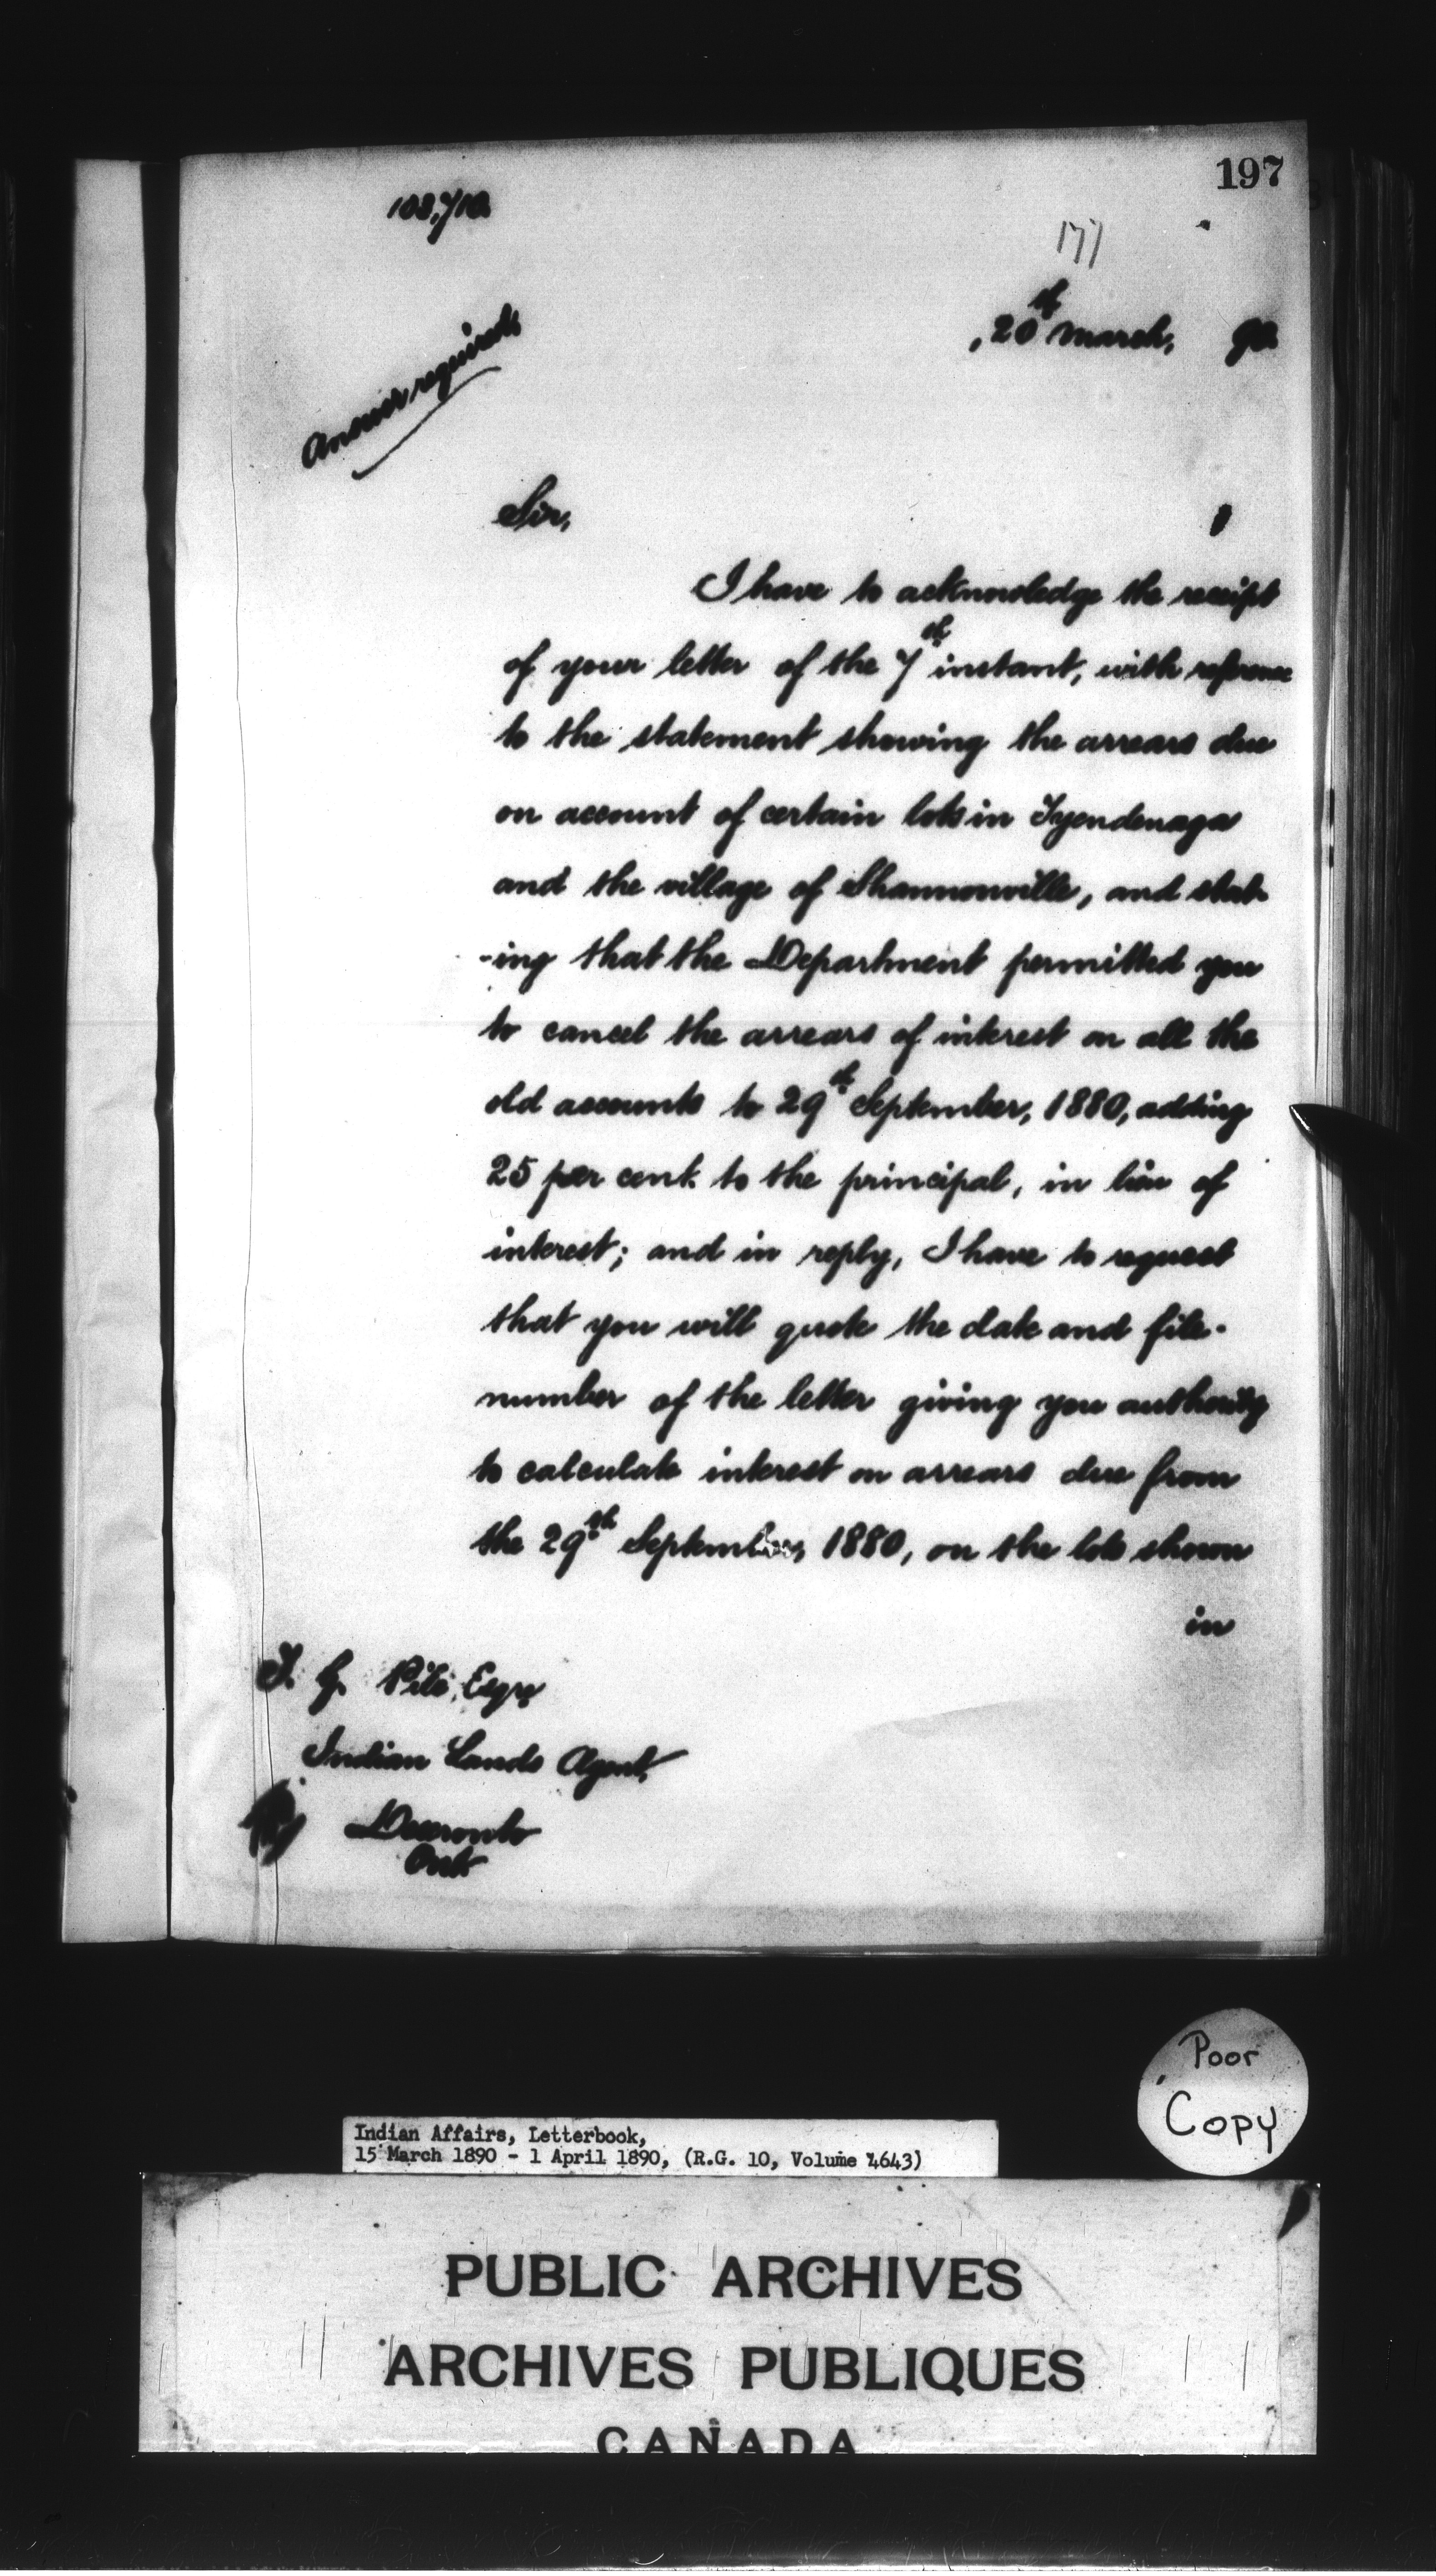 197
103,710
177
, 20th March, 90
Answer required
Sir,
I have to acknowledge the receipt
of your letter of the 7th instant, with reference
to the statement showing the arrears due
on account of certain lots in Tyendenaga
and the village of Shannonville, and stat-
-ing that the Department permitted you
to cancel the arrears of interest on all the
old accounts to 29th September, 1880, adding
25 per cent. to the principal, in lieu of
interest; and in reply, I have to request
that you will quote the date and file-
number of the letter giving you authority
to calculate interest on arrears due from
the 29th September, 1880, on the lots shown
in
Esqre
Indian Lands Agent,
Deseronto
Ont
Poor
Copy
Indian Affairs, Letterbook,
15 March 1890 - 1 April 1890, (R.G. 10, Volume 4643)
PUBLIC ARCHIVES
ARCHIVES PUBLIQUES
CANADA